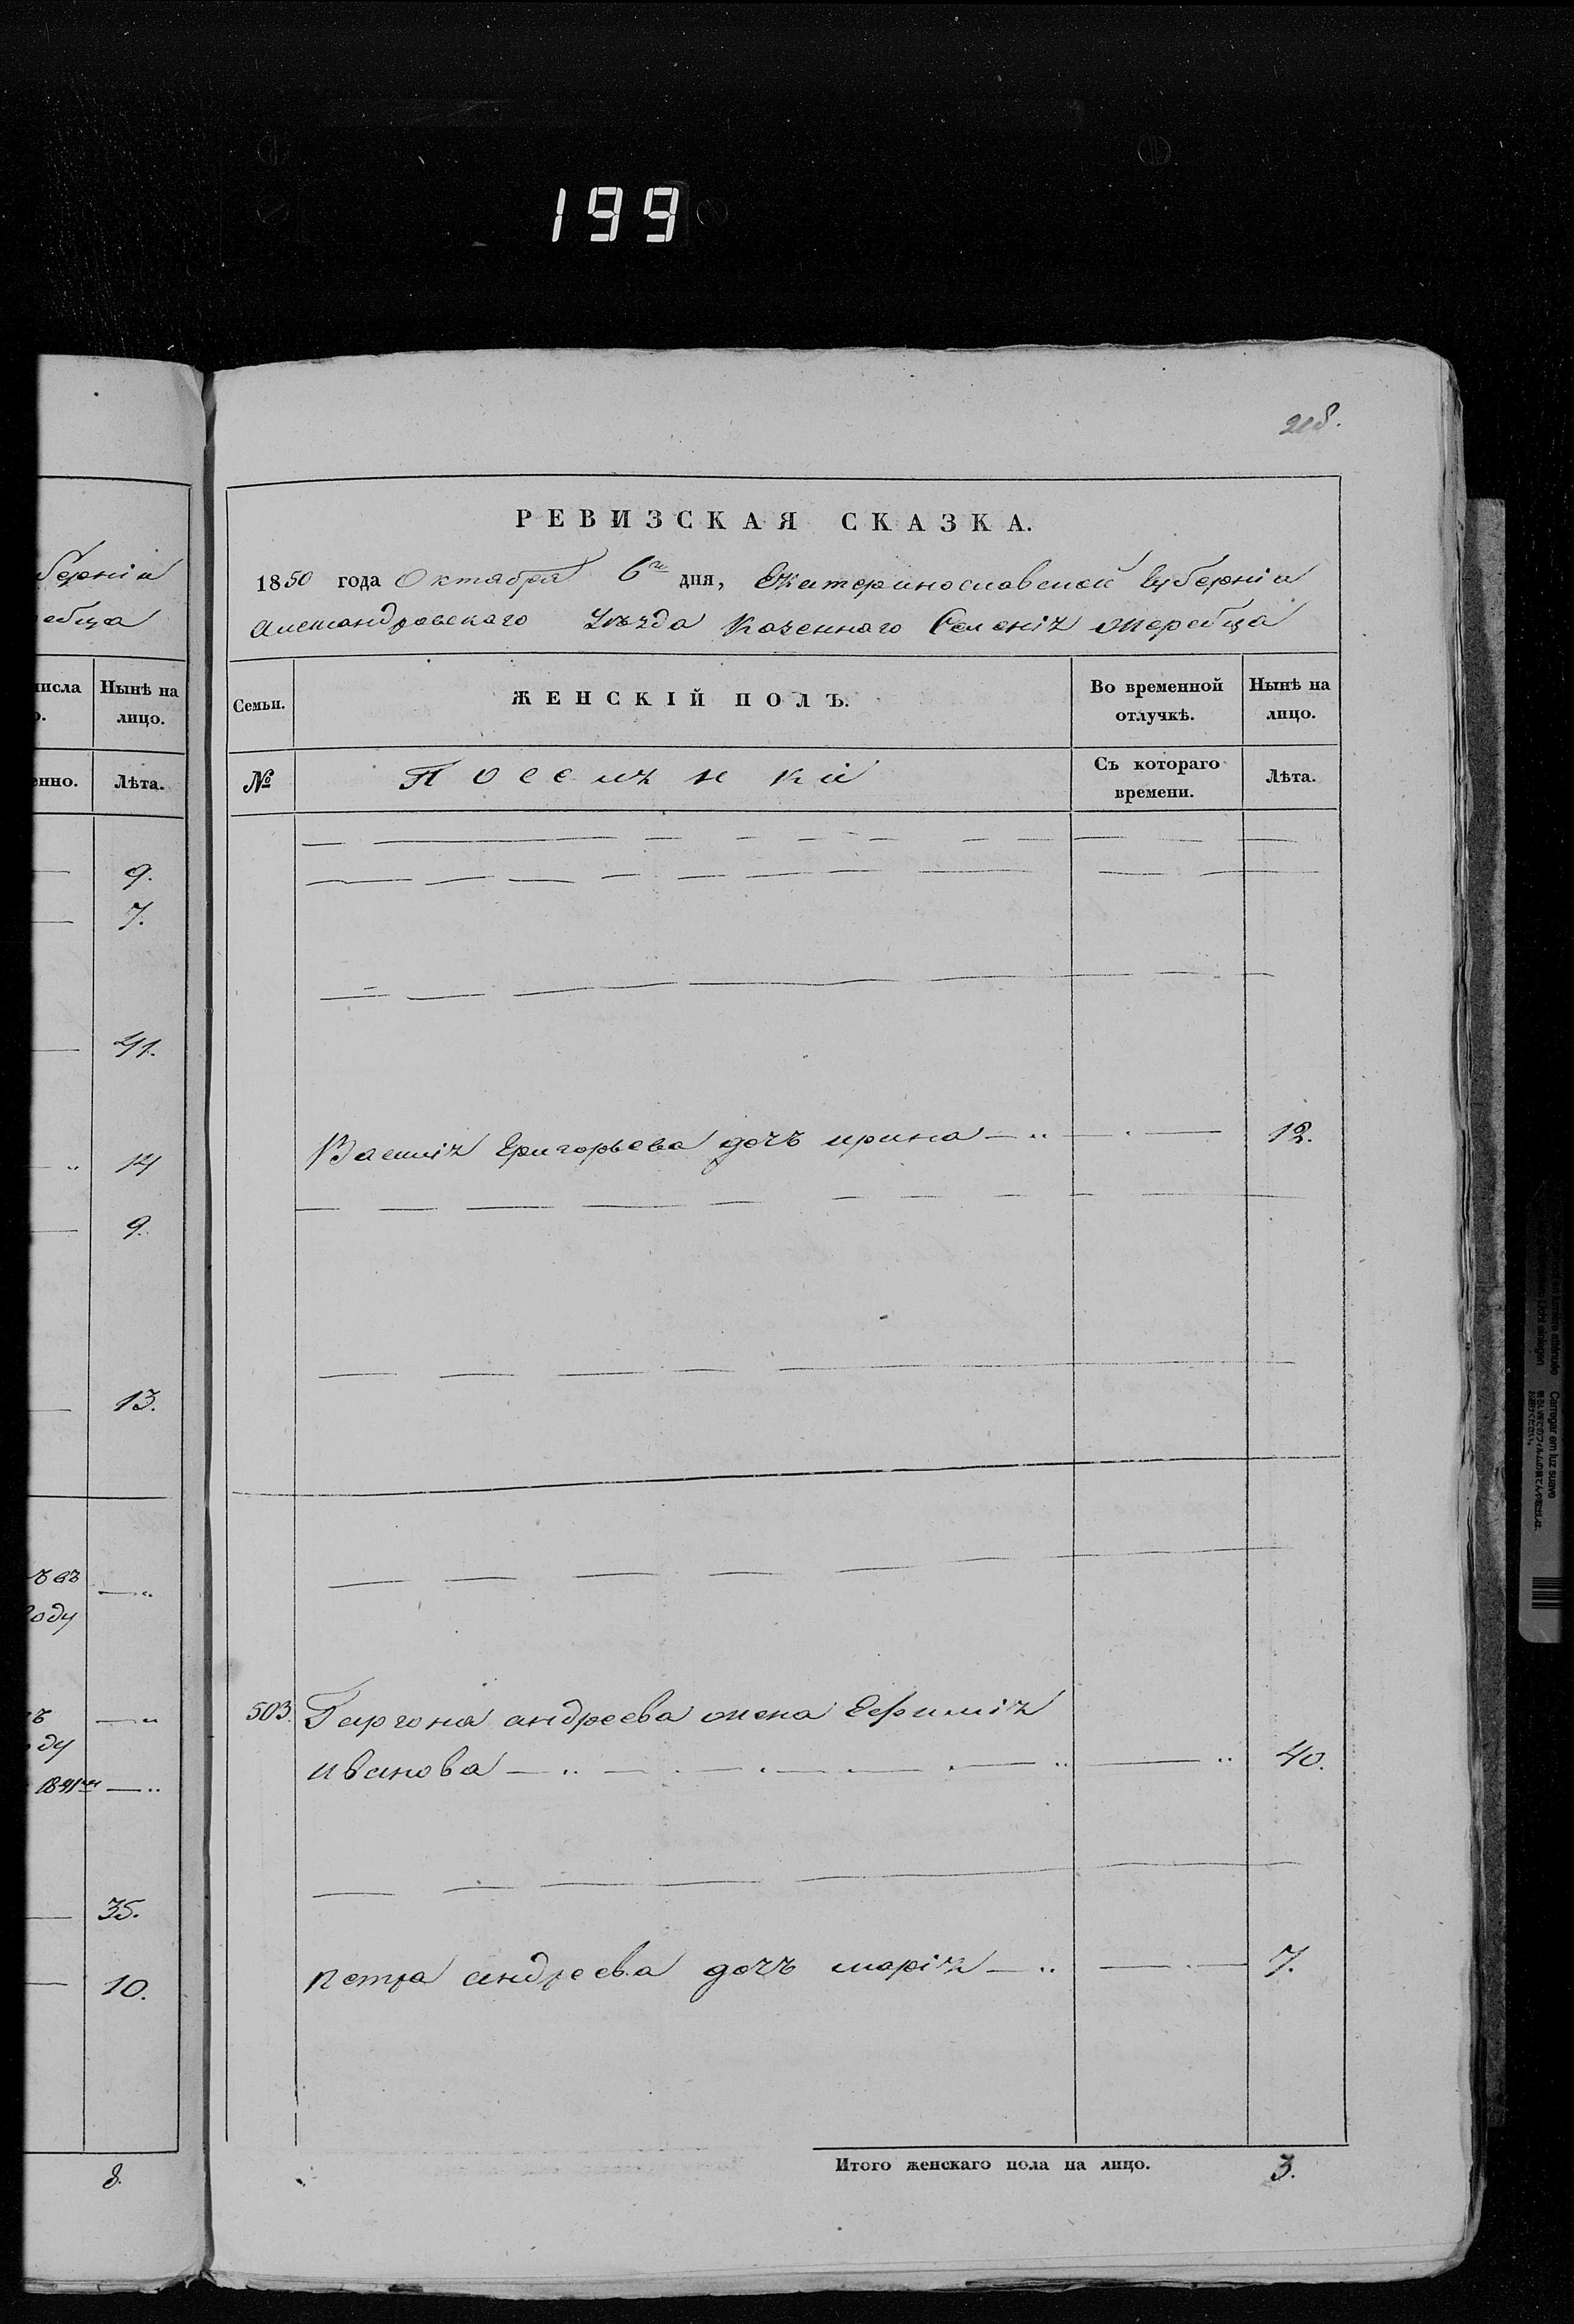 199
218.
РЕВИЗСКАЯ СКАЗКА.
1850 года Октября 6го дня, Екатеринославской Губерніи
Александровскаго Уѣзда Казеннаго Селенія Жеребца
Семьи.
ЖЕНСКІЙ ПОЛЪ.
Во временной отлучкѣ.
Нынѣ на лицо.
№
Поселянки
Съ котораго времени.
Лѣта.
Василія Григорьева дочь ирина 12.
503. андреева жена Ефимія
иванова 40.
петра андреева дочь марія 7.
Итого женскаго пола на лицо. 3.
берніи
ребца
числа
Нынѣ на
лицо.
енно.
Лѣта.
9.
7.
41.
14
9.
13.
ъ въ
году
ду
1841
35.
10.
8.